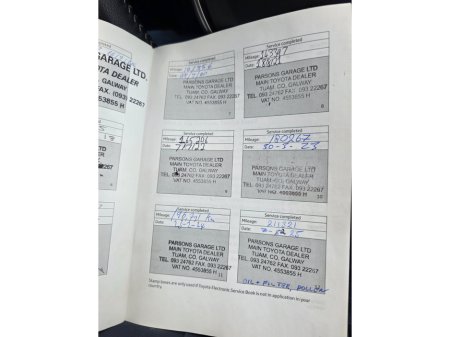 GARAGE LTD.
TOYOTA DEALER
GALWAY
FAX. (093) 22267
4553855 H
Service completed
Mileage:
Date:
PARSONS GARAGE LTD
MAIN TOYOTA DEALER
TUAM, CO. GALWAY
TEL. 093 24762 FAX 093 22267
VAT NO. 4553855 H
7
Service completed
Mileage:
Date:
PARSONS GARAGE LTD
MAIN TOYOTA DEALER
TUAM, CO. GALWAY
TEL. 093 24762 FAX 093 22267
VAT NO. 4553855 H
8
Service completed
Mileage:
Date:
PARSONS GARAGE LTD
MAIN TOYOTA DEALER
TUAM, CO. GALWAY
TEL. 093 24762 FAX 093 22267
VAT NO. 4553855 H
9
Service completed
Mileage: 180267
Date: 30-3-23
PARSONS GARAGE LTD
MAIN TOYOTA DEALER
TUAM, CO. GALWAY
TEL. 093 24762 FAX 093 22267
VAT NO. 4553855 H
10
Service completed
Mileage:
Date:
PARSONS GARAGE LTD
MAIN TOYOTA DEALER
TUAM, CO. GALWAY
TEL. 093 24762 FAX 093 22267
VAT NO. 4553855 H
11
Service completed
Mileage: 211321
Date:
PARSONS GARAGE LTD
MAIN TOYOTA DEALER
TUAM, CO. GALWAY
TEL. 093 24762 FAX 093 22267
VAT NO. 4553855 H
OIL + FILTER, POLLEN
Stamp boxes are only used if Toyota Electronic Service Book is not in application in your
country.